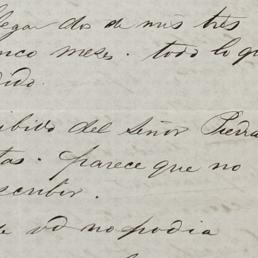 llegar dos de mis tres
inco meses. todo lo qu
dido.
cibido del Señor Pierra
tas. parece que no
scribir.
de vd no podia